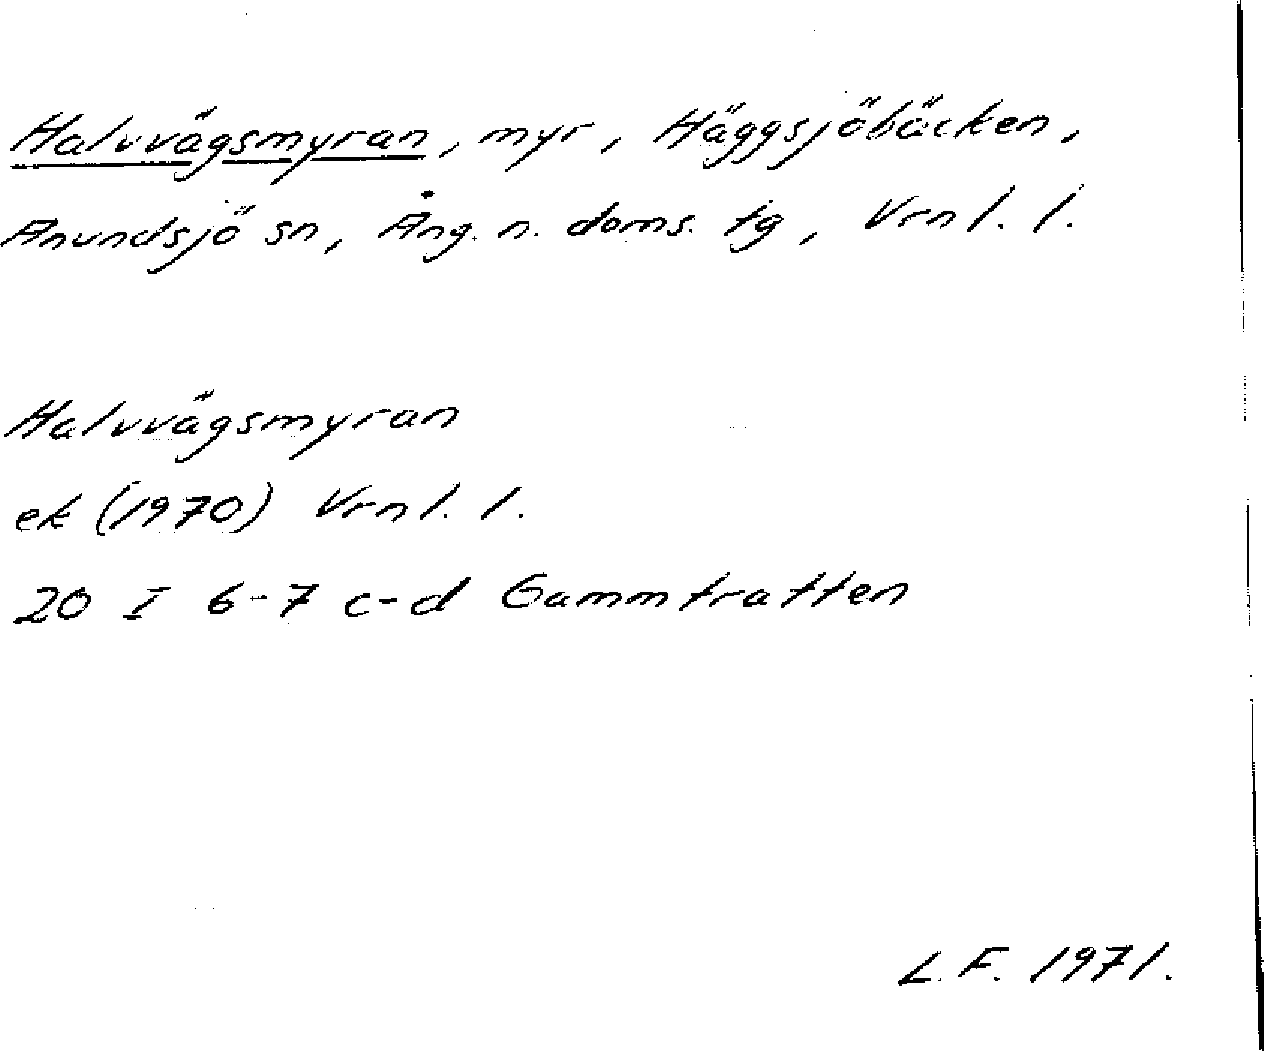 Halvvägsmyran, myr, Häggsjöbäcken,
Anundsjö sn, Ång. n. doms. tg, Vrnl. l.
Halvvägsmyran
ek (1970) Vrnl. l.
20 I 6-7 c-d Gammtratten
L. F. 1971.